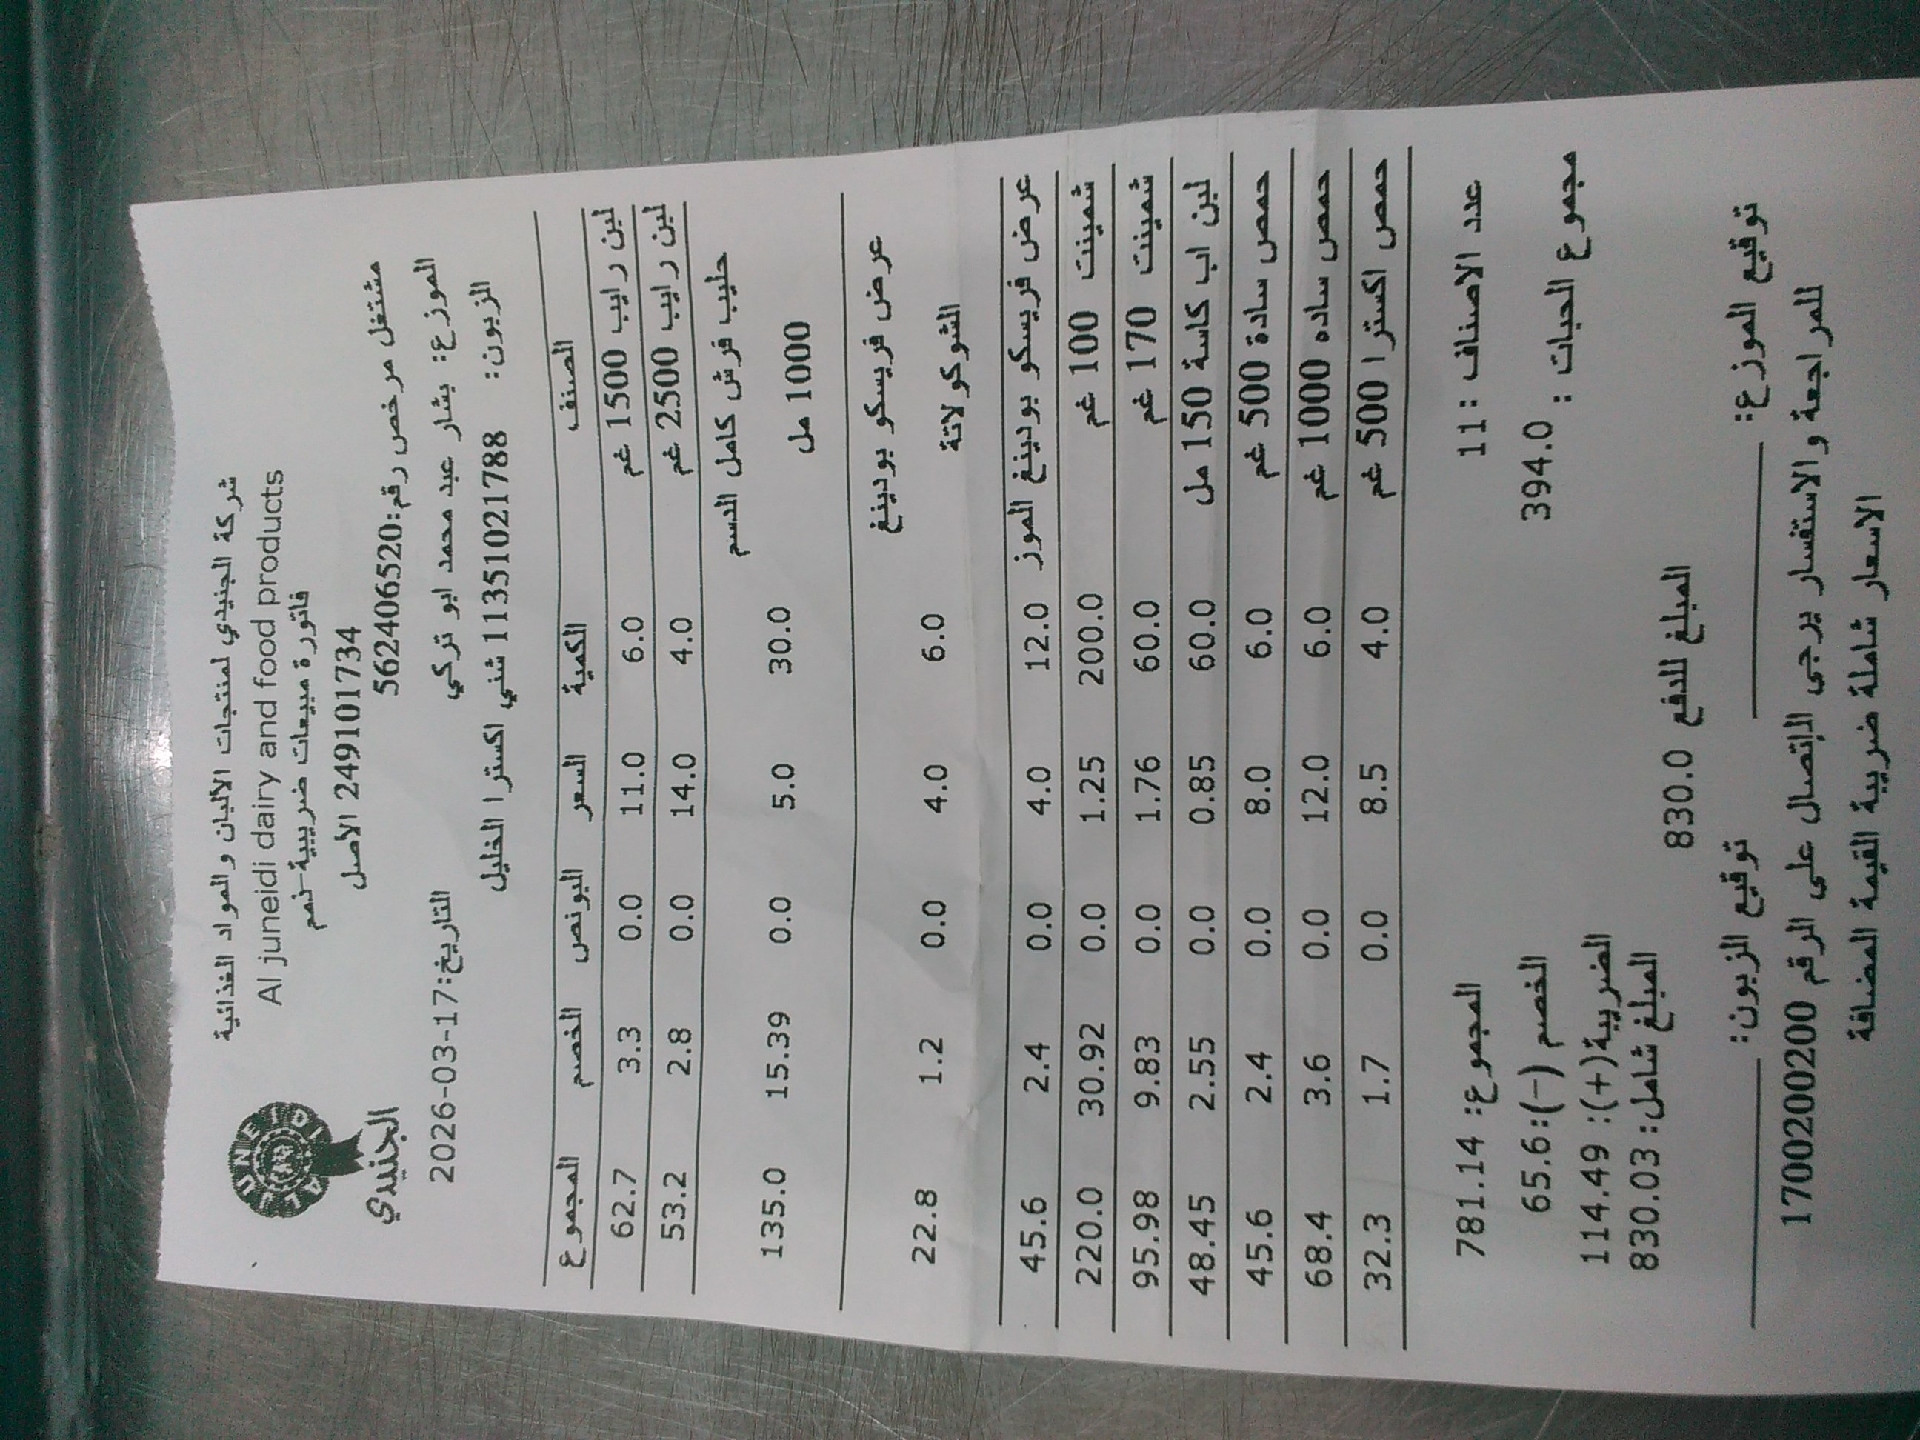 شركة الجنيدي لمنتجات الألبان والمواد الغذائية
Al juneidi dairy and food products
فاتورة مبيعات ضريبية-نعم
249101734 الأصل
مشتغل مرخص رقم:562406520
AL JUNEIDI
الجنيدي
الموزع: بشار عبد محمد ابو تركي
التاريخ:2026-03-17
الزبون: 11351021788 شني اكسترا الخليل
الصنف الكمية السعر البونص الخصم المجموع
لبن رايب 1500 غم 6.0 11.0 0.0 3.3 62.7
لبن رايب 2500 غم 4.0 14.0 0.0 2.8 53.2
حليب فرش كامل الدسم
1000 مل 30.0 5.0 0.0 15.39 135.0
عرض فريسكو بودينغ
الشوكولاتة 6.0 4.0 0.0 1.2 22.8
عرض فريسكو بودينغ الموز 12.0 4.0 0.0 2.4 45.6
شمينت 100 غم 200.0 1.25 0.0 30.92 220.0
شمينت 170 غم 60.0 1.76 0.0 9.83 95.98
لبن اب كاسة 150 مل 60.0 0.85 0.0 2.55 48.45
حمص سادة 500 غم 6.0 8.0 0.0 2.4 45.6
حمص ساده 1000 غم 6.0 12.0 0.0 3.6 68.4
حمص اكسترا 500 غم 4.0 8.5 0.0 1.7 32.3
عدد الاصناف : 11
المجموع: 781.14
مجموع الحبات : 394.0
الخصم (-):65.6
الضريبة(+): 114.49
المبلغ شامل: 830.03
المبلغ للدفع 830.0
توقيع الموزع:
توقيع الزبون:
للمراجعة والاستفسار يرجى الإتصال على الرقم 1700200200
الاسعار شاملة ضريبة القيمة المضافة